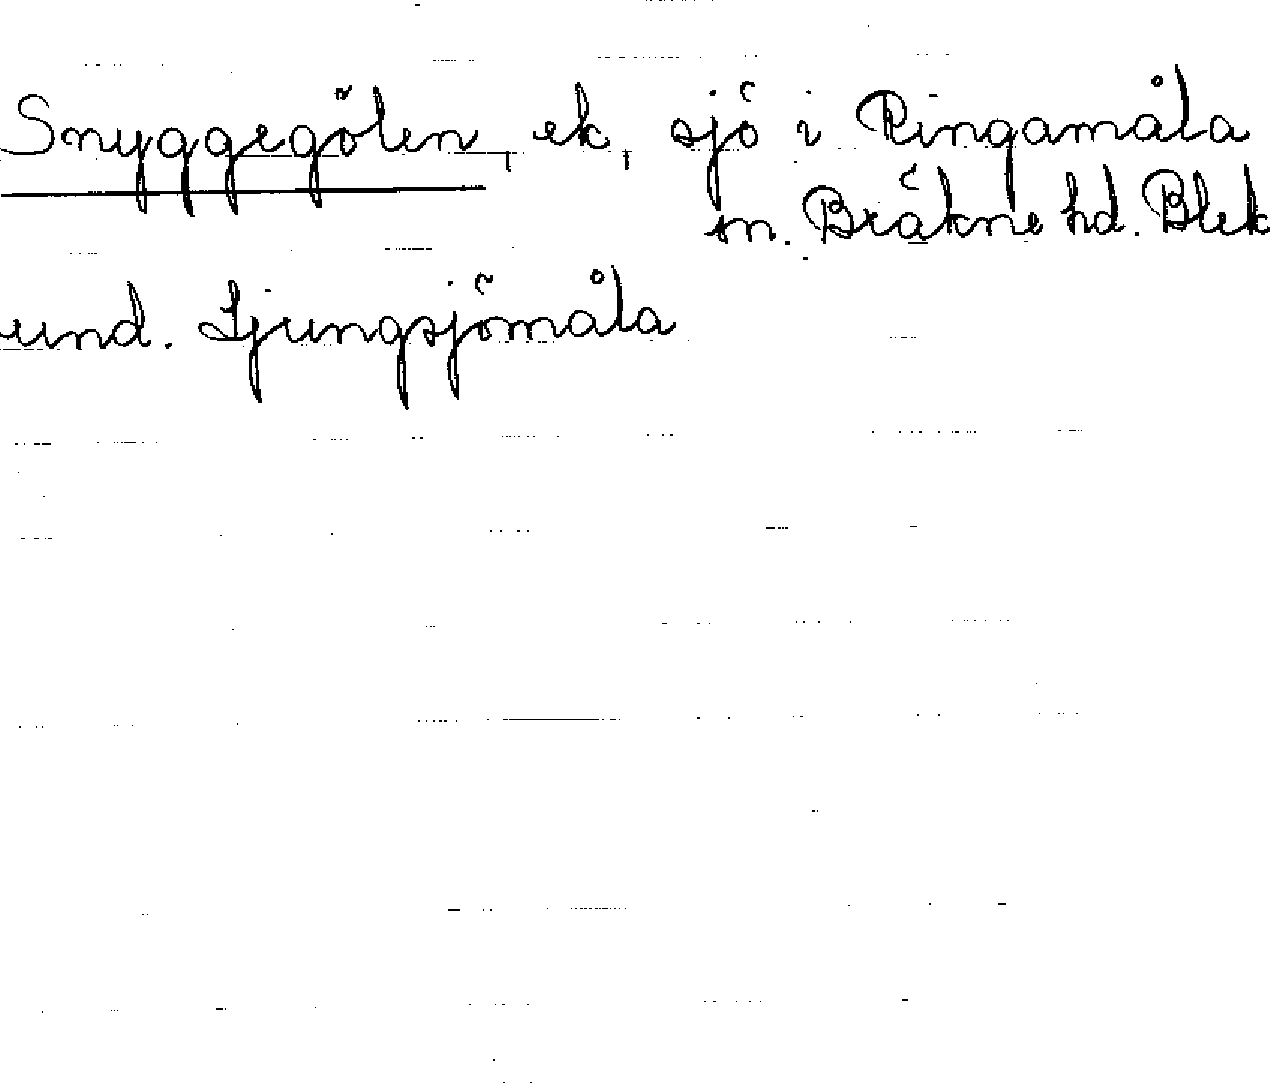 Snyggegölen, ek, sjö i Ringamåla
sn. Bräkne hd. Blek
und. Ljungsjömåla